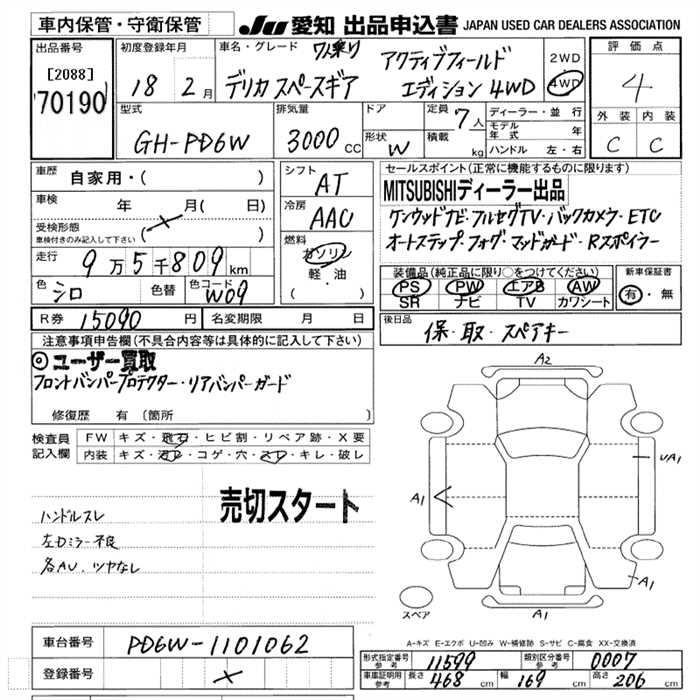 車内保管・守衛保管 JU 愛知 出品申込書 JAPAN USED CAR DEALERS ASSOCIATION
出品番号
[2088]
70190
初度登録年月
18 2月
車名・グレード
7人乗り アクティブフィールド
デリカ スペースギア エディション 4WD
2WD
4WD
評価点
4
外装 内装
C C
型式
GH-PD6W
排気量
3000 CC
ドア
形状 W
定員 7人
積載 kg
ディーラー・並行
モデル年式 年
ハンドル 左・右
車歴 自家用・( )
車検 年 月( 日)
受検形態
車検付きのみ記入して下さい ( )
走行 9万5千809km
色 シロ 色替 色コード W09
シフト AT
冷房 AAC
燃料 ガソリン
軽・油
( )
セールスポイント(正常に機能するものに限ります)
MITSUBISHIディーラー出品
ケンウッドナビ・フルセグTV・バックカメラ・ETC
オートステップ・フォグ・マッドガード・Rスポイラー
装備品(純正品に限り○をつけてください)
PS PW エアB AW
SR ナビ TV カワシート
新車保証書
有・無
R券 15090円 名変期限 月 日
後日品 保・取・スペアキー
注意事項申告欄(不具合内容等は具体的に記入して下さい)
◎ユーザー買取
フロントバンパープロテクター・リアバンパーガード
修復歴 有 〔箇所 〕
検査員記入欄
FW キズ・飛石・ヒビ割・リペア跡・X要
内装 キズ・ヨゴレ・コゲ・穴・スレ・キレ・破レ
売切スタート
ハンドルスレ
左Dミラー不良
各AU、ツヤなし
A2
UA1
A1
A1
A1
スペア
A-キズ E-エクボ U-凹み W-補修跡 S-サビ C-腐食 XX-交換済
車台番号 PD6W-1101062
登録番号
形式指定番号参考 11599 類別区分番号参考 0007
車庫証明用参考 長さ 468 cm 幅 169 cm 高さ 206 cm